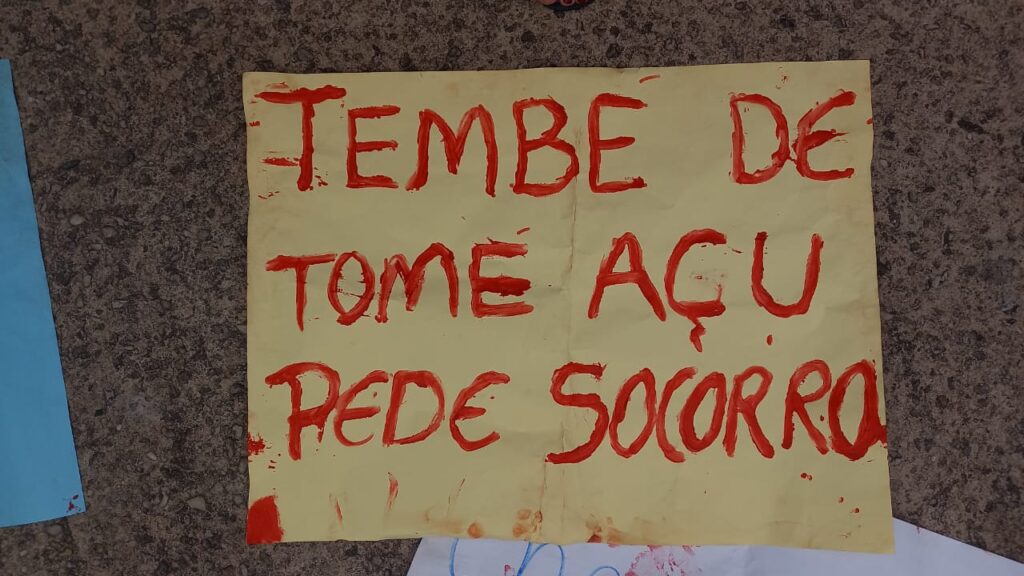 TEMBÉ DE
TOMÉ AÇU
PEDE SOCORRO